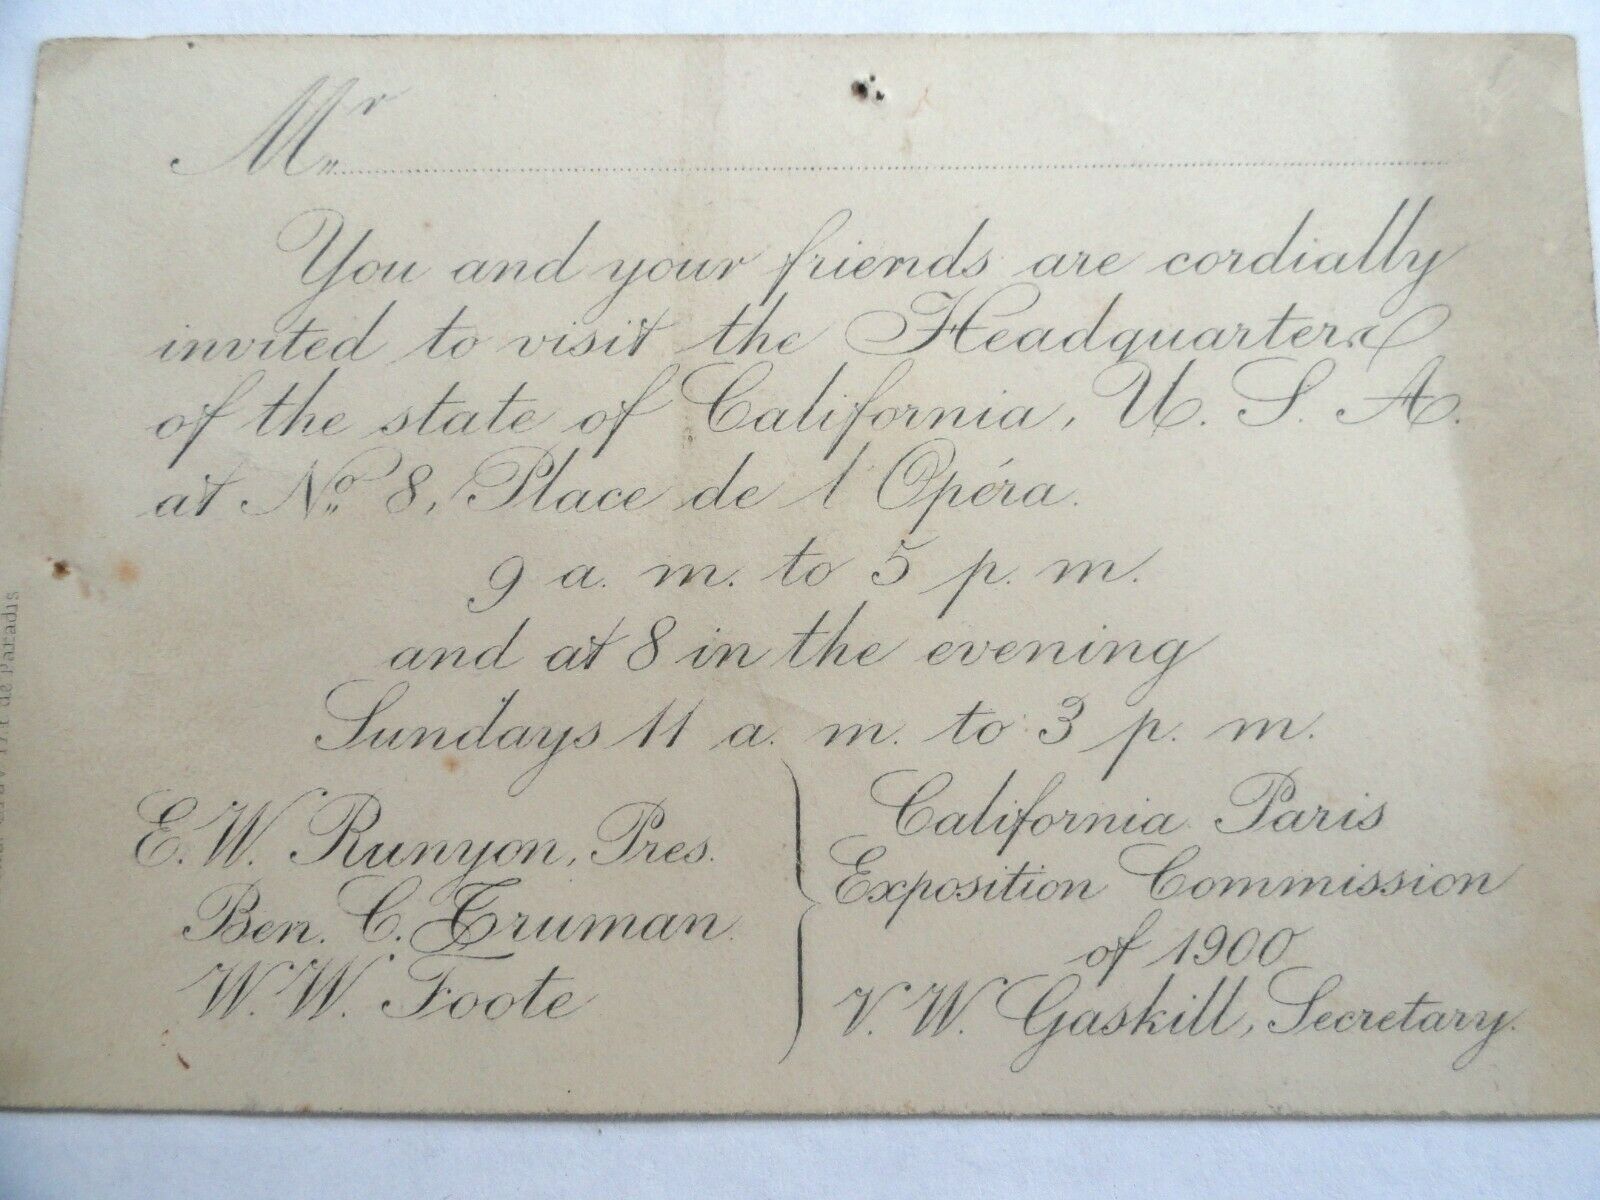 Mr
You and your friends are cordially
invited to visit the Headquarters
of the state of California, U. S. A.
at No. 8, Place de l'Opéra.
9 a. m. to 5 p. m.
and at 8 in the evening
Sundays 11 a. m. to 3 p. m.
E. W. Runyon, Pres.
Ben. C. Truman.
W. W. Foote
California Paris
Exposition Commission
of 1900
V. W. Gaskill, Secretary.
de Paradis